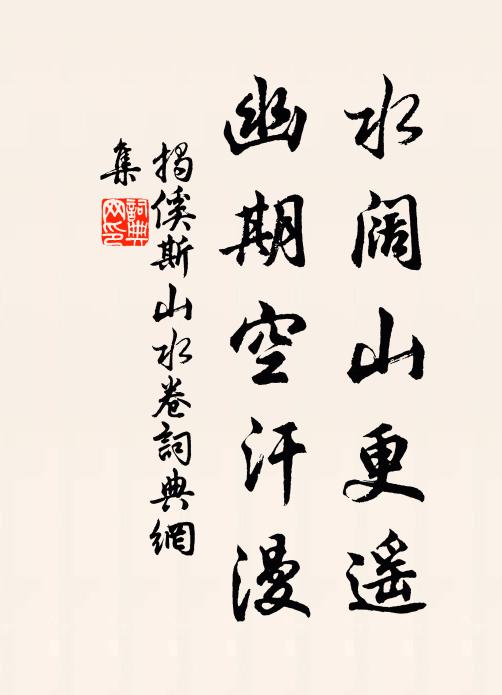 水阔山更遥
幽期空汗漫
揭傒斯山水卷詞典網
集
詞典
网印